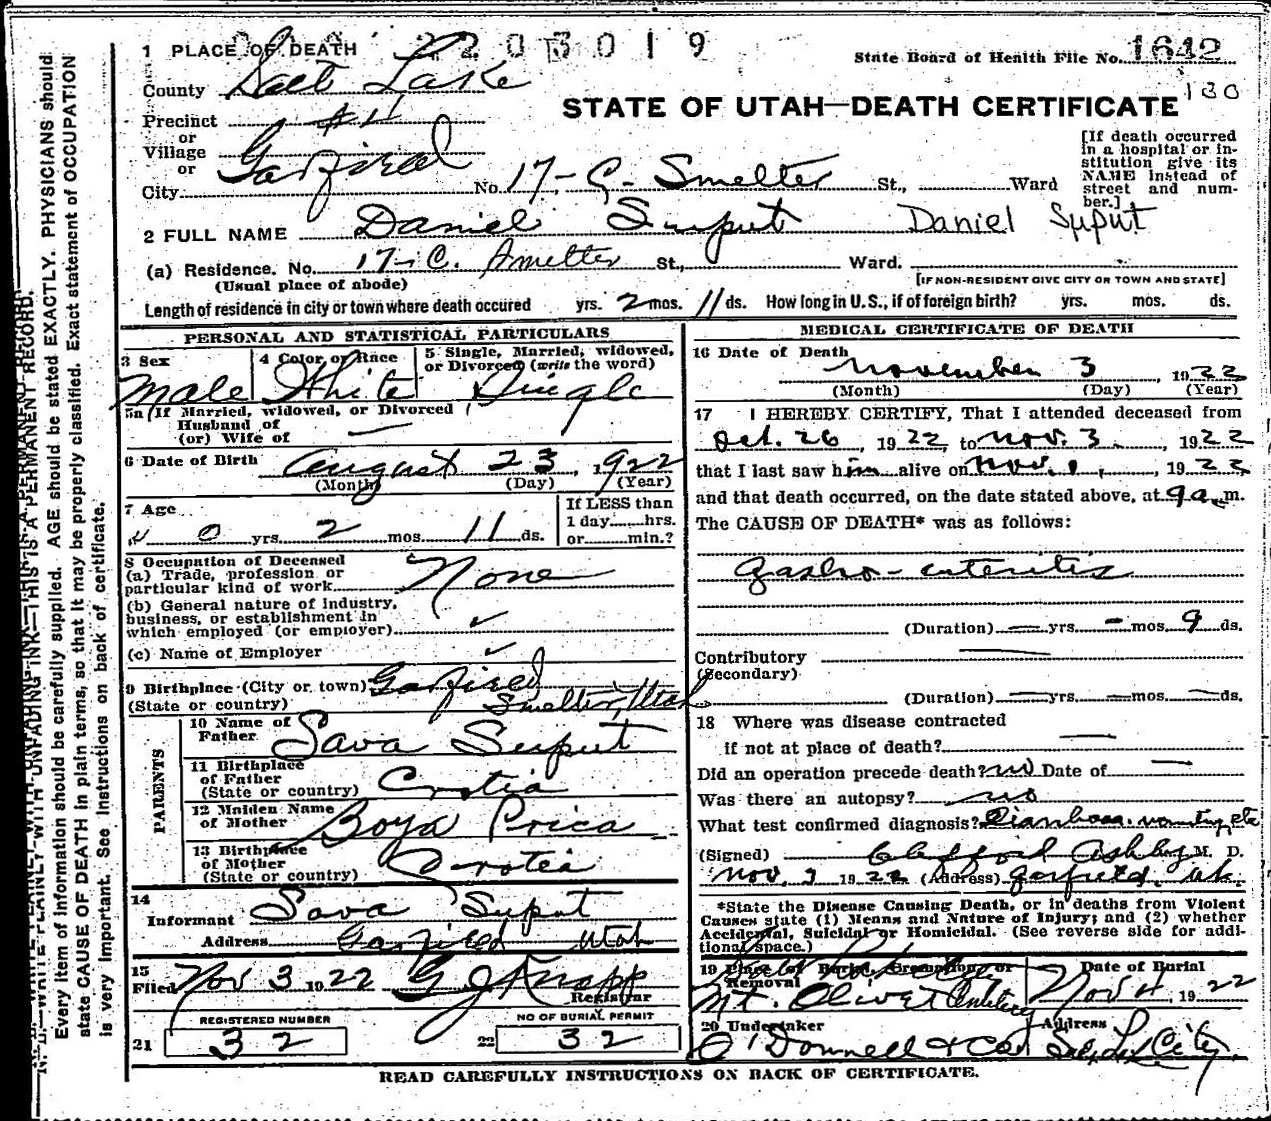 2203019
1 PLACE OF DEATH
State Board of Health File No. 1642
130
County Salt Lake
STATE OF UTAH—DEATH CERTIFICATE
Precinct #11
or
Village
or
City Garfield No. 17-C- Smelter St., Ward
[If death occurred in a hospital or institution give its NAME instead of street and number.]
2 FULL NAME Daniel Suput Daniel Suput
(a) Residence. No. 17-C. Smelter St., Ward.
(Usual place of abode) [IF NON-RESIDENT GIVE CITY OR TOWN AND STATE]
Length of residence in city or town where death occured yrs. 2 mos. 11 ds. How long in U. S., if of foreign birth? yrs. mos. ds.
PERSONAL AND STATISTICAL PARTICULARS
3 Sex Male
4 Color or Race White
5 Single, Married, widowed, or Divorced (write the word) Single
5a If Married, widowed, or Divorced
Husband of
(or) Wife of —
6 Date of Birth August 23, 1922
(Month) (Day) (Year)
7 Age 0 yrs. 2 mos. 11 ds.
If LESS than
1 day......hrs.
or......min.?
8 Occupation of Deceased
(a) Trade, profession or
particular kind of work None
(b) General nature of industry,
business, or establishment in
which employed (or employer)
(c) Name of Employer
9 Birthplace (City or town) Garfield
(State or country) Smelter, Utah
PARENTS
10 Name of Father Sava Suput
11 Birthplace of Father
(State or country) Crotia
12 Maiden Name of Mother Boya Prica
13 Birthplace of Mother
(State or country) Crotia
14
Informant Sava Suput
Address Garfield Utah
15
Filed Nov 3 1922 G J Knapp
Registrar
REGISTERED NUMBER
21 32
NO OF BURIAL PERMIT
22 32
MEDICAL CERTIFICATE OF DEATH
16 Date of Death
November 3, 1922
(Month) (Day) (Year)
17 I HEREBY CERTIFY, That I attended deceased from
Oct. 26, 1922 to Nov. 3, 1922
that I last saw him alive on Nov. 1, 1922
and that death occurred, on the date stated above, at 9 a. m.
The CAUSE OF DEATH* was as follows:
Gastro-enteritis
(Duration) — yrs. — mos. 9 ds.
Contributory —
(Secondary)
(Duration) — yrs. — mos. — ds.
18 Where was disease contracted
if not at place of death? —
Did an operation precede death? no Date of —
Was there an autopsy? no
What test confirmed diagnosis? Diarrhoea. vomiting etc
(Signed) Clifford Ashby M. D.
Nov. 3 1922 (Address) Garfield, Ut.
*State the Disease Causing Death, or in deaths from Violent
Causes state (1) Means and Nature of Injury; and (2) whether
Accidental, Suicidal or Homicidal. (See reverse side for addi-
tional space.)
19 Place of Burial, Cremation, or Removal
Mt. Olivet Cemetery
Date of Burial
Nov 4, 1922
20 Undertaker
O'Donnell & Co
Address
S. L. City
READ CAREFULLY INSTRUCTIONS ON BACK OF CERTIFICATE.
N. B.—WRITE PLAINLY WITH UNFADING INK—THIS IS A PERMANENT RECORD.
Every item of information should be carefully supplied. AGE should be stated EXACTLY. PHYSICIANS should
state CAUSE OF DEATH in plain terms, so that it may be properly classified. Exact statement of OCCUPATION
is very important. See instructions on back of certificate.